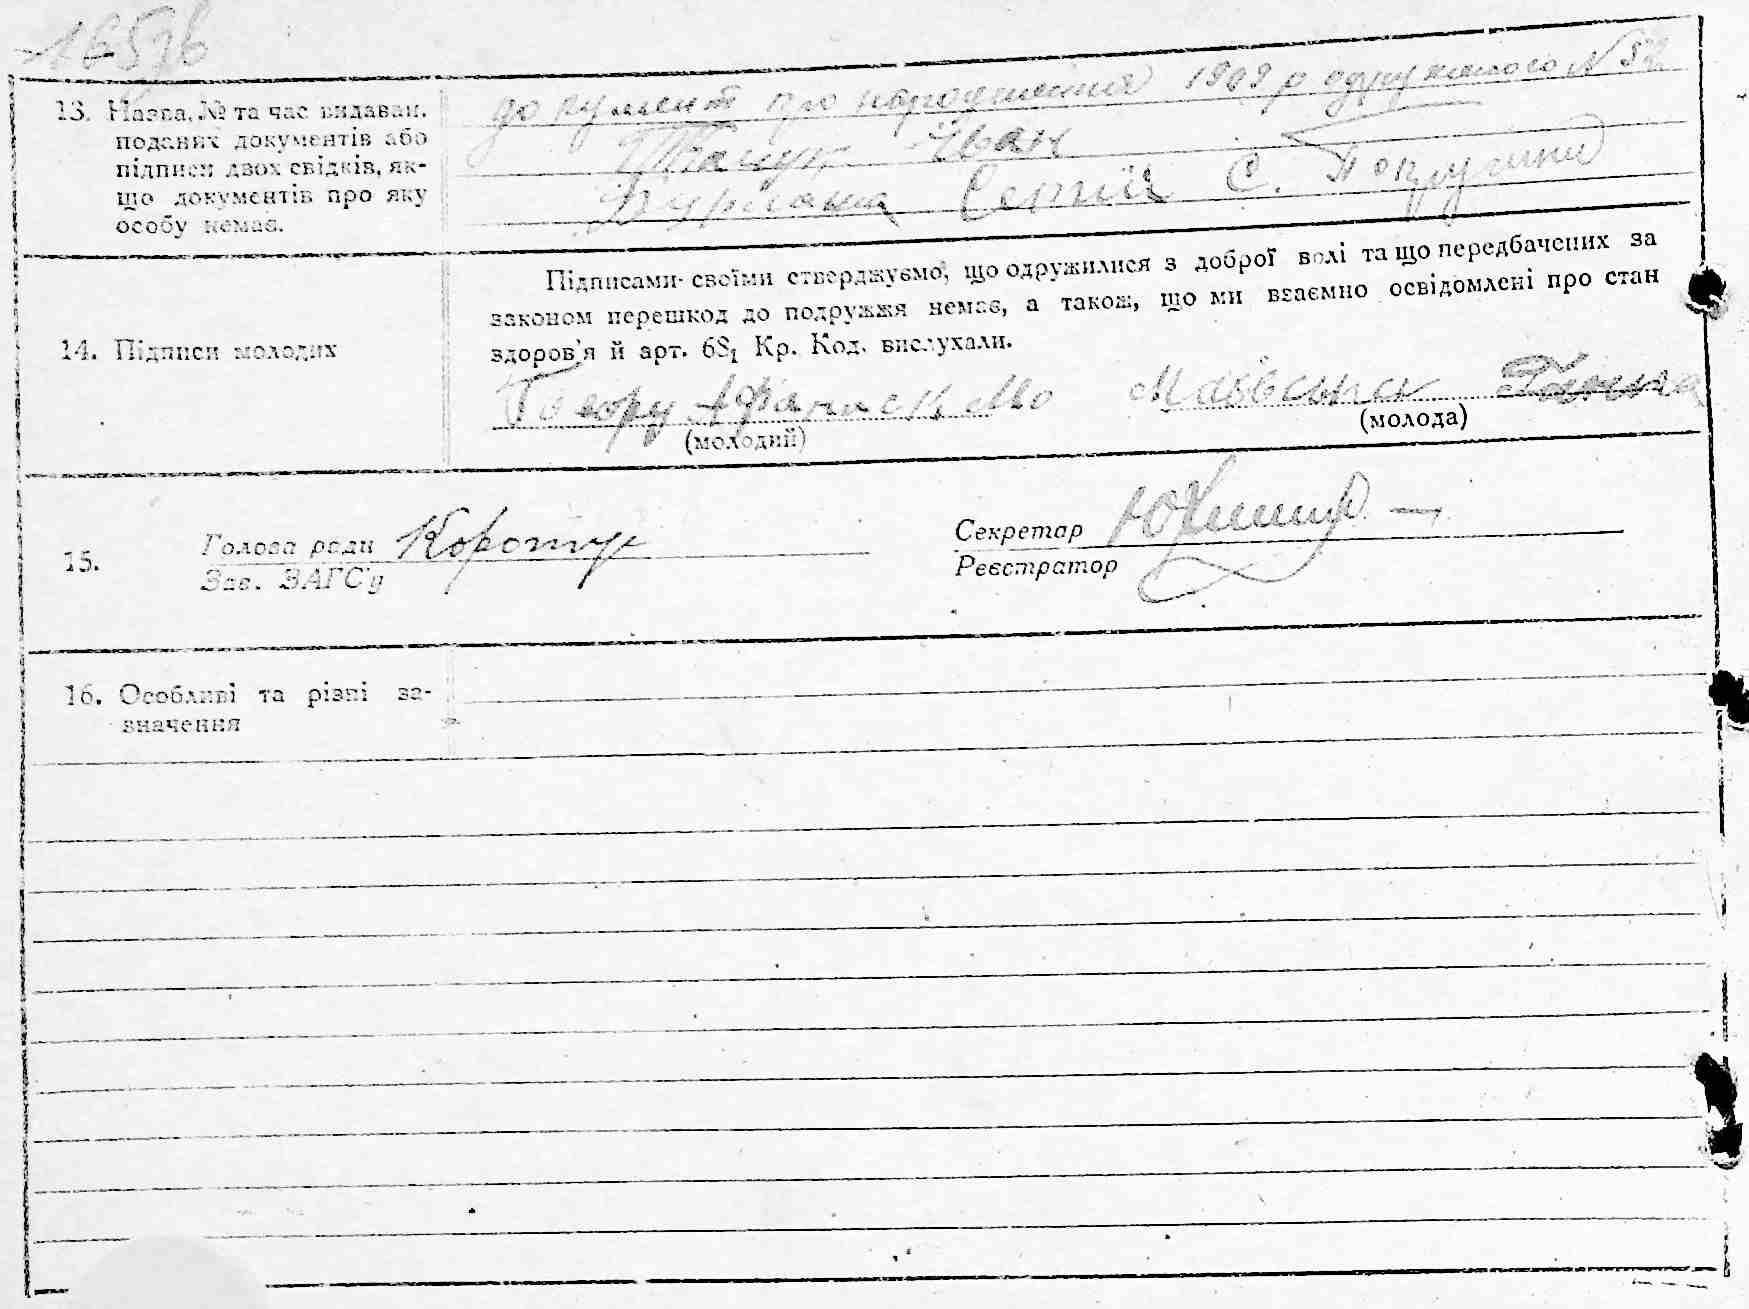 165зв
13. Назва, № та час видаван. поданих документів або підписи двох свідків, якщо документів про яку особу немає.
документ про народження 1909 р одруженого N
Іван
Сергій С.
14. Підписи молодих
Підписами своїми стверджуємо, що одружилися з доброї волі та що передбачених за
законом перешкод до подружжя немає, а також, що ми взаємно освідомлені про стан
здоров'я й арт. 68₁ Кр. Код. вислухали.
(молодий)
(молода)
15.
Голова ради
Зав. ЗАГС'у
Секретар
Реєстратор
16. Особливі та різні за-
значення